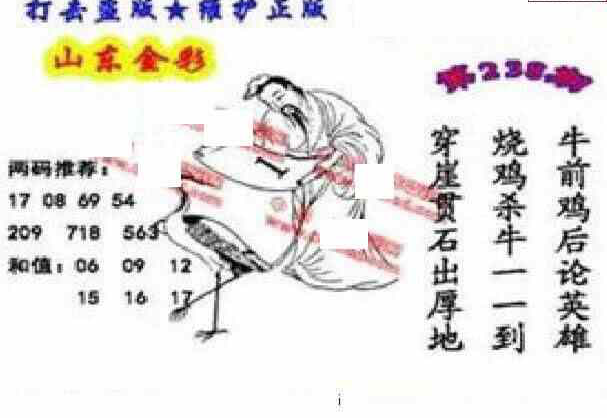 打击盗版★维护正版
山东金彩
第238期
牛前鸡后论英雄
烧鸡杀牛一一到
穿崖贯石出厚地
两码推荐:
17 08 69 54
209 718 563
和值: 06 09 12
15 16 17